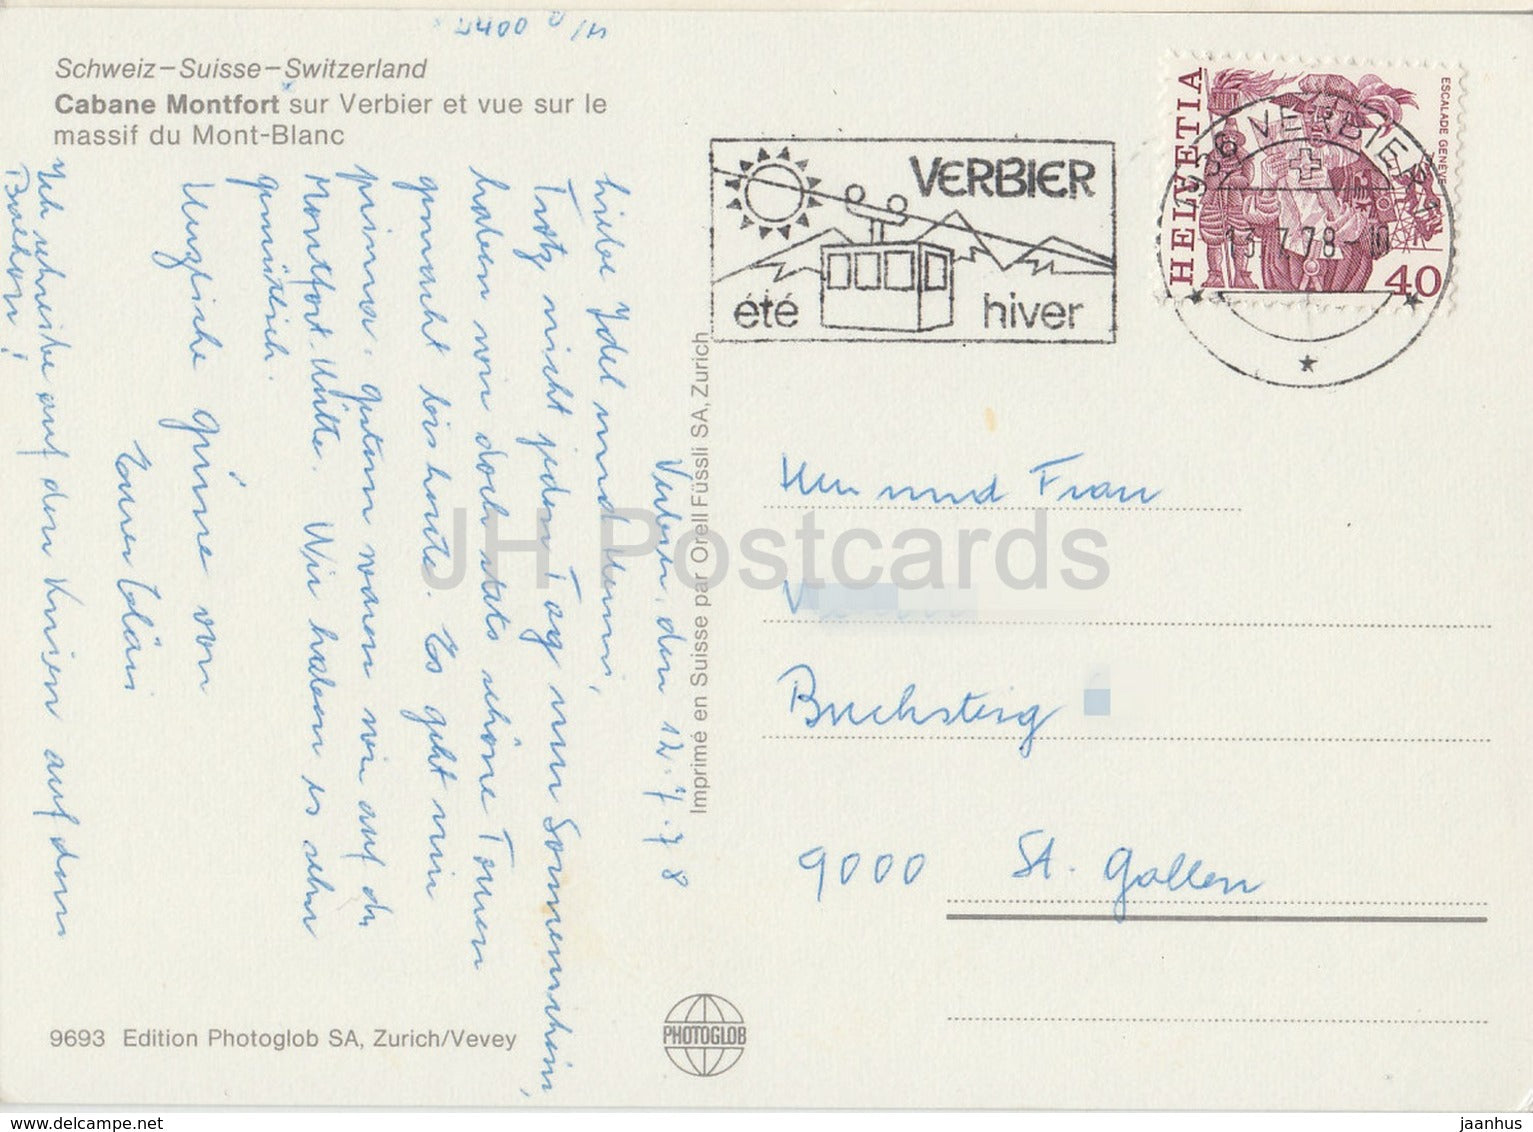 Schweiz–Suisse–Switzerland
Cabane Montfort sur Verbier et vue sur le
massif du Mont-Blanc
Verbier, den 12.7.78
Liebe Idel und Henni,
Trotz nicht jeden Tag nur Sonnenschein,
haben wir doch stets schöne Touren
gemacht bis heute. Es geht mir
prima. Gestern waren wir auf der
Montfort Hütte. Wir haben es sehr
gemütlich.
Herzliche Grüsse von
Eurer
Ich schreibe auf den Knien auf dem
Balkon!
9693 Edition Photoglob SA, Zurich/Vevey
Imprimé en Suisse par Orell Füssli SA, Zurich
PHOTOGLOB
VERBIER
été hiver
HELVETIA
ESCALADE GENÈVE
40
1936 VERBIER 1
13.7.78
Herrn und Frau
V
Buchsteig
9000 St. Gallen
JH Postcards
www.delcampe.net
jaanhus